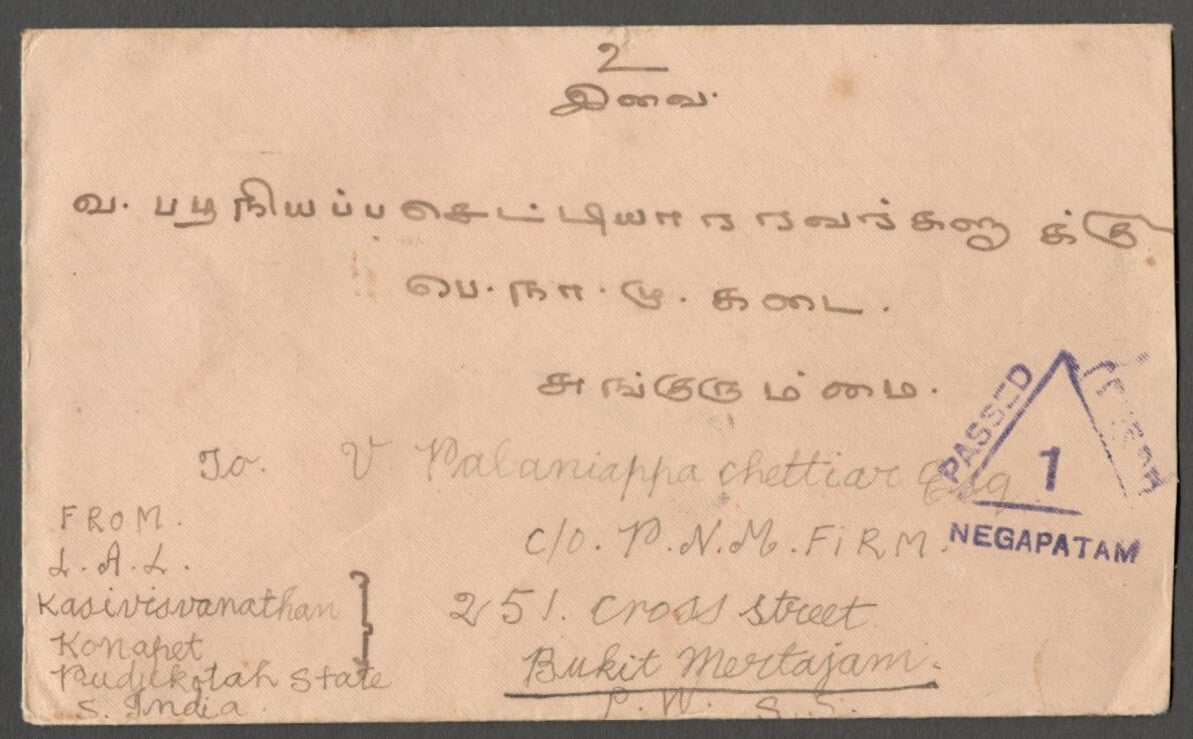 உ
இவை.
வ. பழநியப்பசெட்டியாரரவர்களுக்கு
பெ. நா. மு. கடை.
சுங்குரும்மை.
To. V Palaniappa chettiar Esq
c/o. P.N.M. FiRM.
251. Cross street
Bukit Mertajam.
P.W. S.S.
FROM.
L.A.L.
Kasivisvanathan
Konapet
Pudukotah State
S. India
PASSED
1
NEGAPATAM